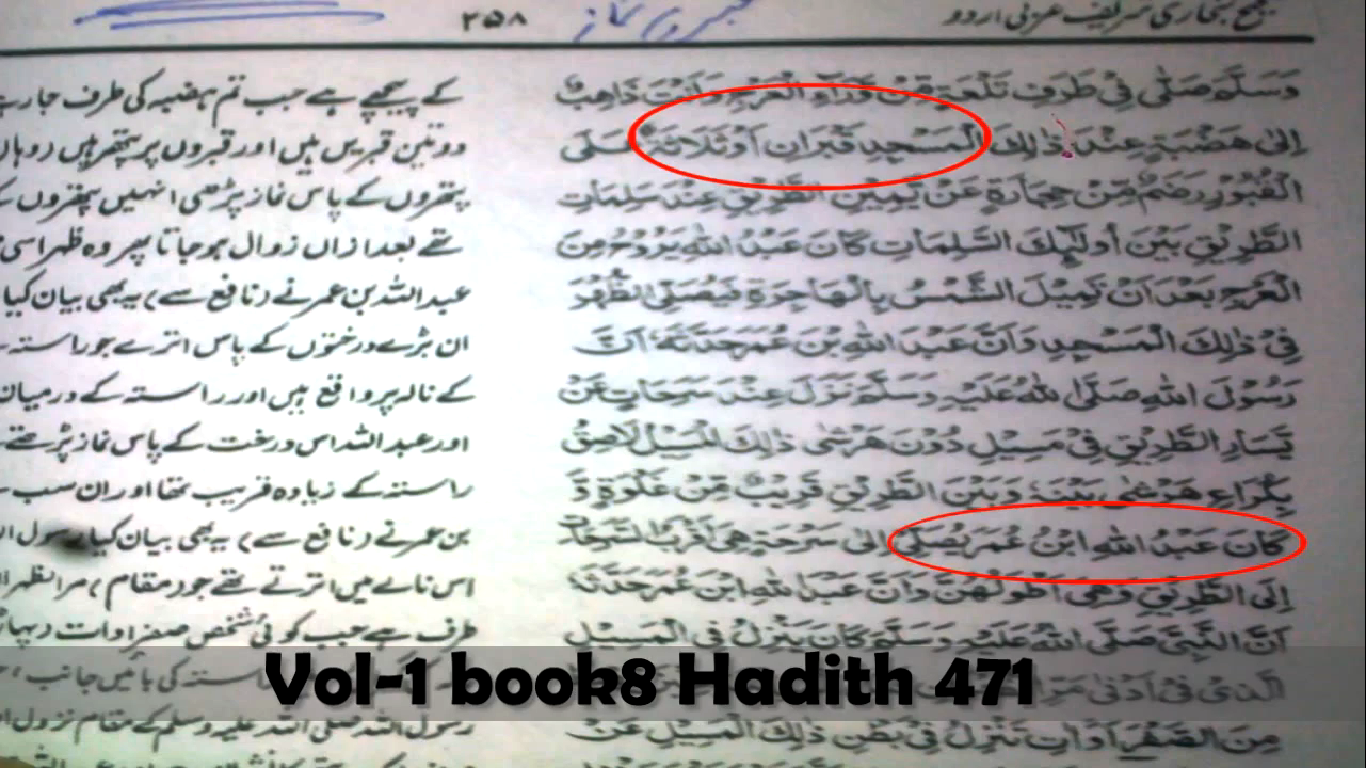 بخاری شریف عربی اردو
۲۵۸
وَسَلَّمَ صَلّٰى فِيْ طَرَفِ تَلْعَةٍ مِّنْ وَّرَآءِ الْعَرْجِ وَاَنْتَ ذَاهِبٌ
اِلٰى هَضْبَةٍ عِنْدَ ذٰلِكَ الْمَسْجِدِ قَبْرَانِ اَوْ ثَلَاثَةٌ عَلَى
الْقُبُوْرِ رَضَمٌ مِّنْ حِجَارَةٍ عَنْ يَّمِيْنِ الطَّرِيْقِ عِنْدَ سَلِمَاتِ
الطَّرِيْقِ بَيْنَ اُولٰٓئِكَ السَّلِمَاتِ كَانَ عَبْدُ اللهِ يَرُوْحُ مِنَ
الْعَرْجِ بَعْدَ اَنْ تَمِيْلَ الشَّمْسُ بِالْهَاجِرَةِ فَيُصَلِّى الظُّهْرَ
فِيْ ذٰلِكَ الْمَسْجِدِ وَاَنَّ عَبْدَ اللهِ بْنَ عُمَرَ حَدَّثَهٗ اَنَّ
رَسُوْلَ اللهِ صَلَّى اللهُ عَلَيْهِ وَسَلَّمَ نَزَلَ عِنْدَ سَرَحَاتٍ عَنْ
يَّسَارِ الطَّرِيْقِ فِيْ مَسِيْلٍ دُوْنَ هَرْشٰى ذٰلِكَ الْمَسِيْلُ لَاصِقٌ
بِكُرَاعِ هَرْشٰى بَيْنَهٗ وَبَيْنَ الطَّرِيْقِ قَرِيْبٌ مِّنْ غَلْوَةٍ وَّ
كَانَ عَبْدُ اللهِ ابْنُ عُمَرَ يُصَلِّيْ اِلٰى سَرْحَةٍ هِيَ اَقْرَبُ السَّرَحَاتِ
اِلَى الطَّرِيْقِ وَهِيَ اَطْوَلُهُنَّ وَاَنَّ عَبْدَ اللهِ ابْنَ عُمَرَ حَدَّثَهٗ
اَنَّ النَّبِيَّ صَلَّى اللهُ عَلَيْهِ وَسَلَّمَ كَانَ يَنْزِلُ فِي الْمَسِيْلِ
الَّذِيْ فِيْ اَدْنٰى
مِنَ الصَّفْرَاوَاتِ تَنْزِلُ فِيْ بَطْنِ ذٰلِكَ الْمَسِيْلِ عَنْ
کے پیچھے ہے جب تم ہضبہ کی طرف جا رہے
دو تین قبریں ہیں اور قبروں پر پتھر ہیں
پتھروں کے پاس نماز پڑھی انہیں پتھروں کے
تھے بعد ازاں زوال ہوجاتا پھر وہ ظہر اسی
عبداللہ بن عمر نے (نافع سے) یہ بھی بیان کیا
ان بڑے درختوں کے پاس اترے جو راستہ
کے نالہ پر واقع ہیں اور راستہ کے درمیان
اور عبداللہ اس درخت کے پاس نماز پڑھتے
راستہ کے زیادہ قریب تھا اور ان سب
بن عمر نے (نافع سے) یہ بھی بیان کیا رسول
اس نالے میں اترتے تھے جو (مقام) مرالظہران
طرف ہے جب کوئی شخص صفراوات
راستہ کی بائیں جانب
رسول اللہ صلی اللہ علیہ وسلم کے مقام نزول
Vol-1 book8 Hadith 471